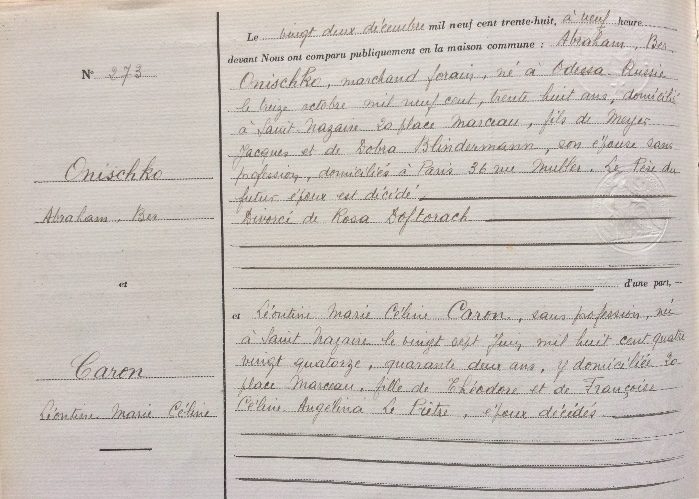 N° 273
Onischko
Abraham, Ber
et
Caron
Léontine Marie Céline
Le vingt deux décembre mil neuf cent trente-huit, à neuf heure
devant Nous ont comparu publiquement en la maison commune : Abraham, Ber
Onischko, marchand forain, né à Odessa Russie
le treize octobre mil neuf cent, trente huit ans, domicilié
à Saint Nazaire 20 place Marceau, fils de Meyer
Jacques et de Dobra Blindermann, son épouse sans
profession, domiciliés à Paris 36 rue Muller. Le Père du
futur époux est décidé
Divorcé de Rosa Doftorach
d'une part,
et Léontine Marie Céline Caron, sans profession, né
à Saint Nazaire le vingt sept mil huit cent quatre
vingt quatorze, quarante deux ans, y domiciliée 20
place Marceau, fille de Théodore et de Françoise
Céline Angelina Le Piètre, époux décidés